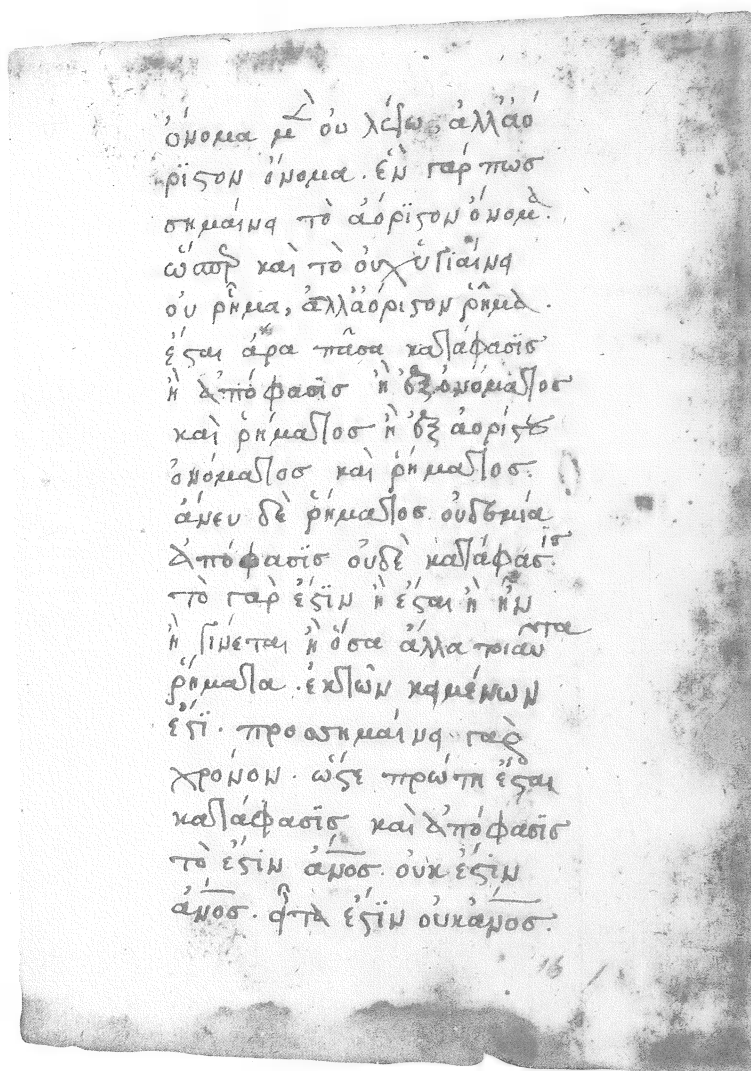 ὄνομα μὲν οὐ λέγω, ἀλλὰ ἀό
ρϊστον ὄνομα. ἓν γάρ πως
σημαίνει τὸ ἀόρϊστον ὄνομα.
ὥσπερ καὶ τὸ οὐχ ὑγιαίνει
οὐ ῥῆμα, ἀλλ' ἀόριστον ῥῆμα.
ἔσται ἄρα πᾶσα κατάφασϊς
ἢ ἀπόφασϊς ἢ ἐξ ὀνόματος
καὶ ῥήματος ἢ ἐξ ἀορίστου
ὀνόματος καὶ ῥήματος.
ἄνευ δὲ ῥήματος οὐδεμία
ἀπόφασϊς οὐδὲ κατάφασις.
τὸ γὰρ ἔστϊν ἢ ἔσται ἢ ἦν
ἢ γίνεται ἢ ὅσα ἄλλα τοιαῦτα
ῥήματα. ἐκ τῶν κειμένων
ἐστϊ. προσσημαίνει γὰρ
χρόνον. ὥστε πρώτη ἔσται
κατάφασϊς καὶ ἀπόφασϊς
τὸ ἔστϊν ἄνος. οὐκ ἔστϊν
ἄνος. εἶτα ἔστϊν οὐκ ἄνος.